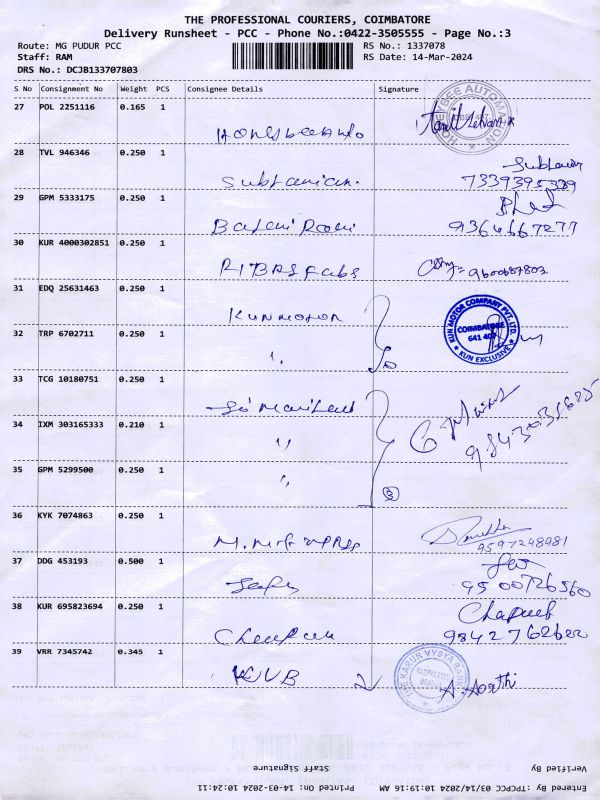 THE PROFESSIONAL COURIERS, COIMBATORE
Delivery Runsheet - PCC - Phone No.:0422-3505555 - Page No.:3
Route: MG PUDUR PCC RS No.: 1337078
Staff: RAM RS Date: 14-Mar-2024
DRS No.: DCJB133707803
S No Consignment No Weight PCS Consignee Details Signature
27 POL 2251116 0.165 1
HONEYBEE AUTOMATION
28 TVL 946346 0.250 1
Subramanian 7339395339
29 GPM 5333175 0.250 1
9364667277
30 KUR 4000302851 0.250 1
RIBAS Fabs 9600687803
31 EDQ 25631463 0.250 1
KUN MOTOR
KUN MOTOR COMPANY PVT. LTD.
COIMBATORE
641 407
KUN EXCLUSIVE
32 TRP 6702711 0.250 1
"
33 TCG 10180751 0.250 1
34 IXM 303165333 0.210 1
"
35 GPM 5299500 0.250 1
"
3
36 KYK 7074863 0.250 1
9597248981
37 DDG 453193 0.500 1
9500726560
38 KUR 695823694 0.250 1
39 VRR 7345742 0.345 1
KVB
THE KARUR VYSYA BANK
A. Aarthi
Staff Signature Verified By
Printed On: 14-03-2024 10:24:11 Entered By :TPCPCC 03/14/2024 10:19:16 AM